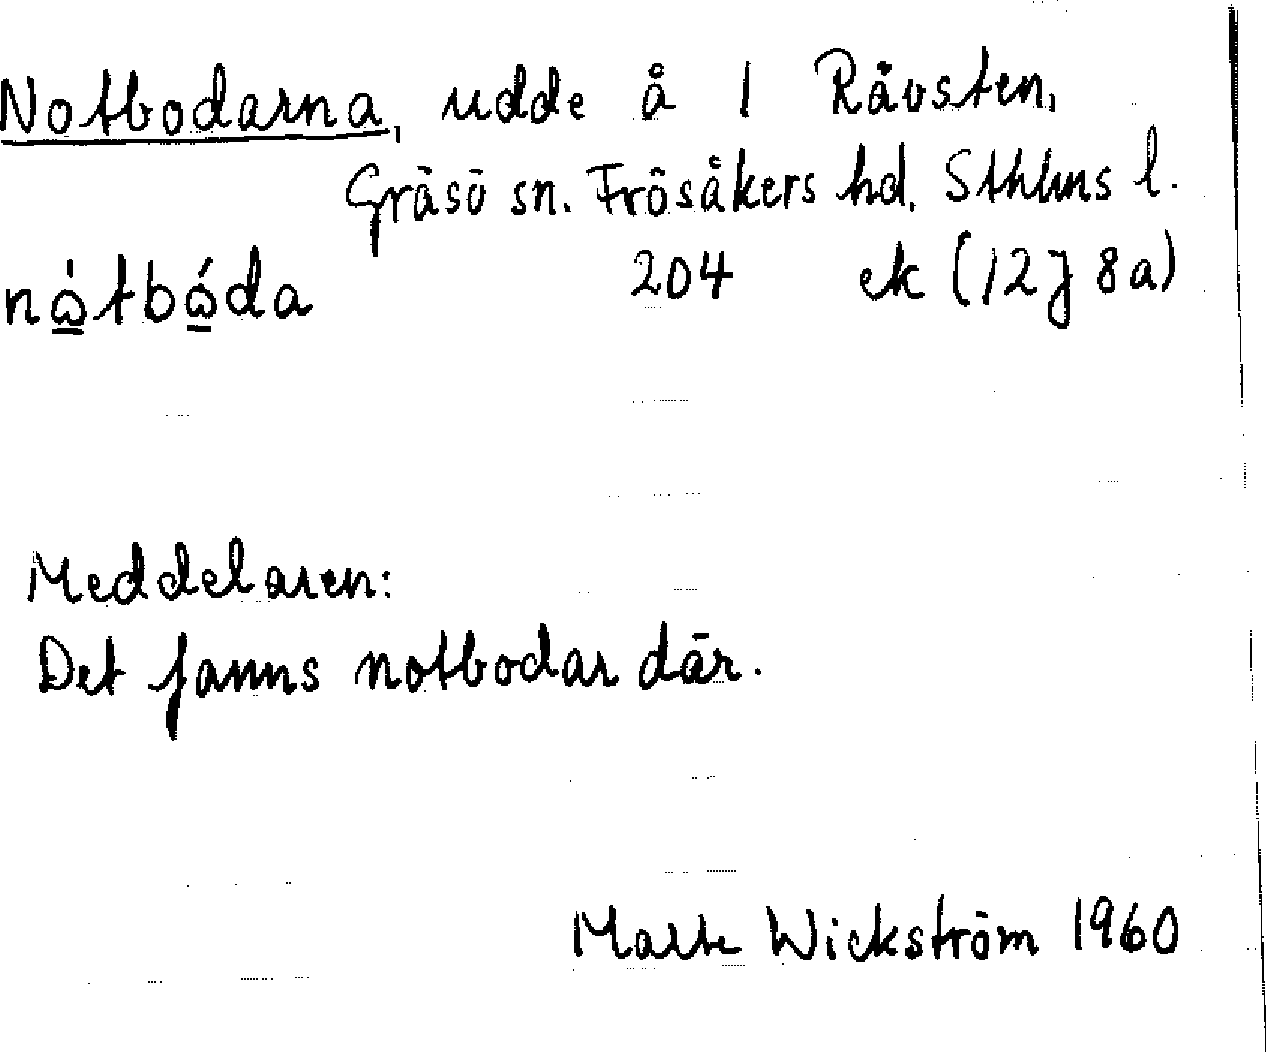 Notbodarna, udde å 1 Rävsten,
Gräsö sn. Frösåkers hd. Sthlms l.
nώ̲tbώ̲da 204 ek (12J 8a)
Meddelaren:
Det fanns notbodar där.
Malte Wickström 1960